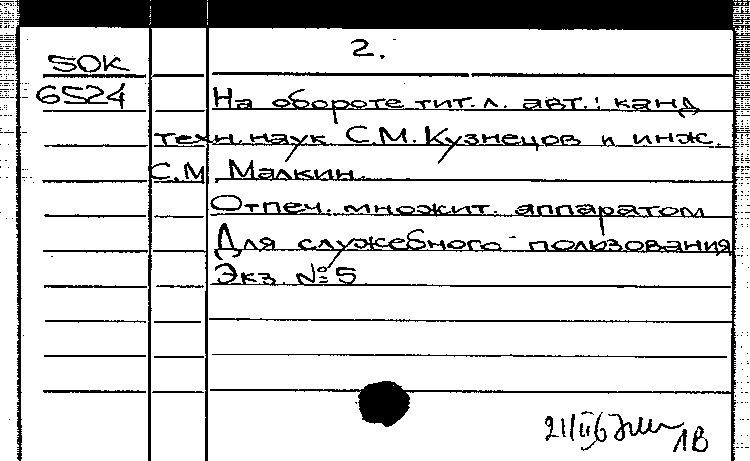 2.
50К
6524
На обороте тит. л. авт.: канд
техн. наук С.М. Кузнецов и инж.
С.М. Малкин.
Отпеч. множит. аппаратом
Для служебного пользования
Экз. №5
1В